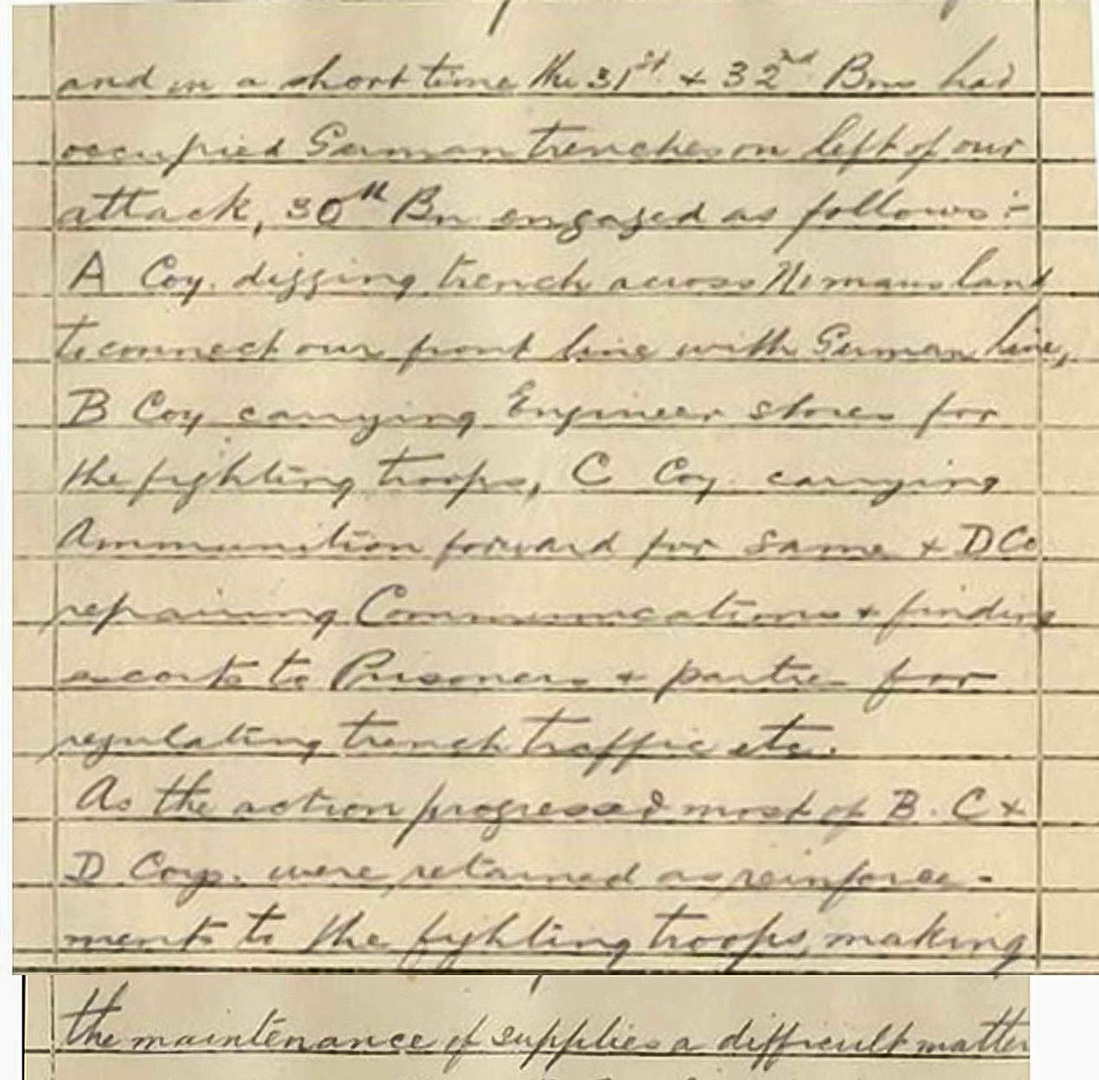 and in a short time the 31st & 32nd Bns had
occupied German trenches on left of our
attack, 30th Bn engaged as follows :-
A Coy. digging trench across No mans land
to connect our front line with German line,
B Coy carrying Engineer stores for
the fighting troops, C Coy. carrying
Ammunition forward for same & D Co
repairing Communications & finding
escorts to Prisoners & parties for
regulating trench traffic etc.
As the action progressed most of B. C &
D Coys. were retained as reinforce-
ments to the fighting troops, making
the maintenance of supplies a difficult matter